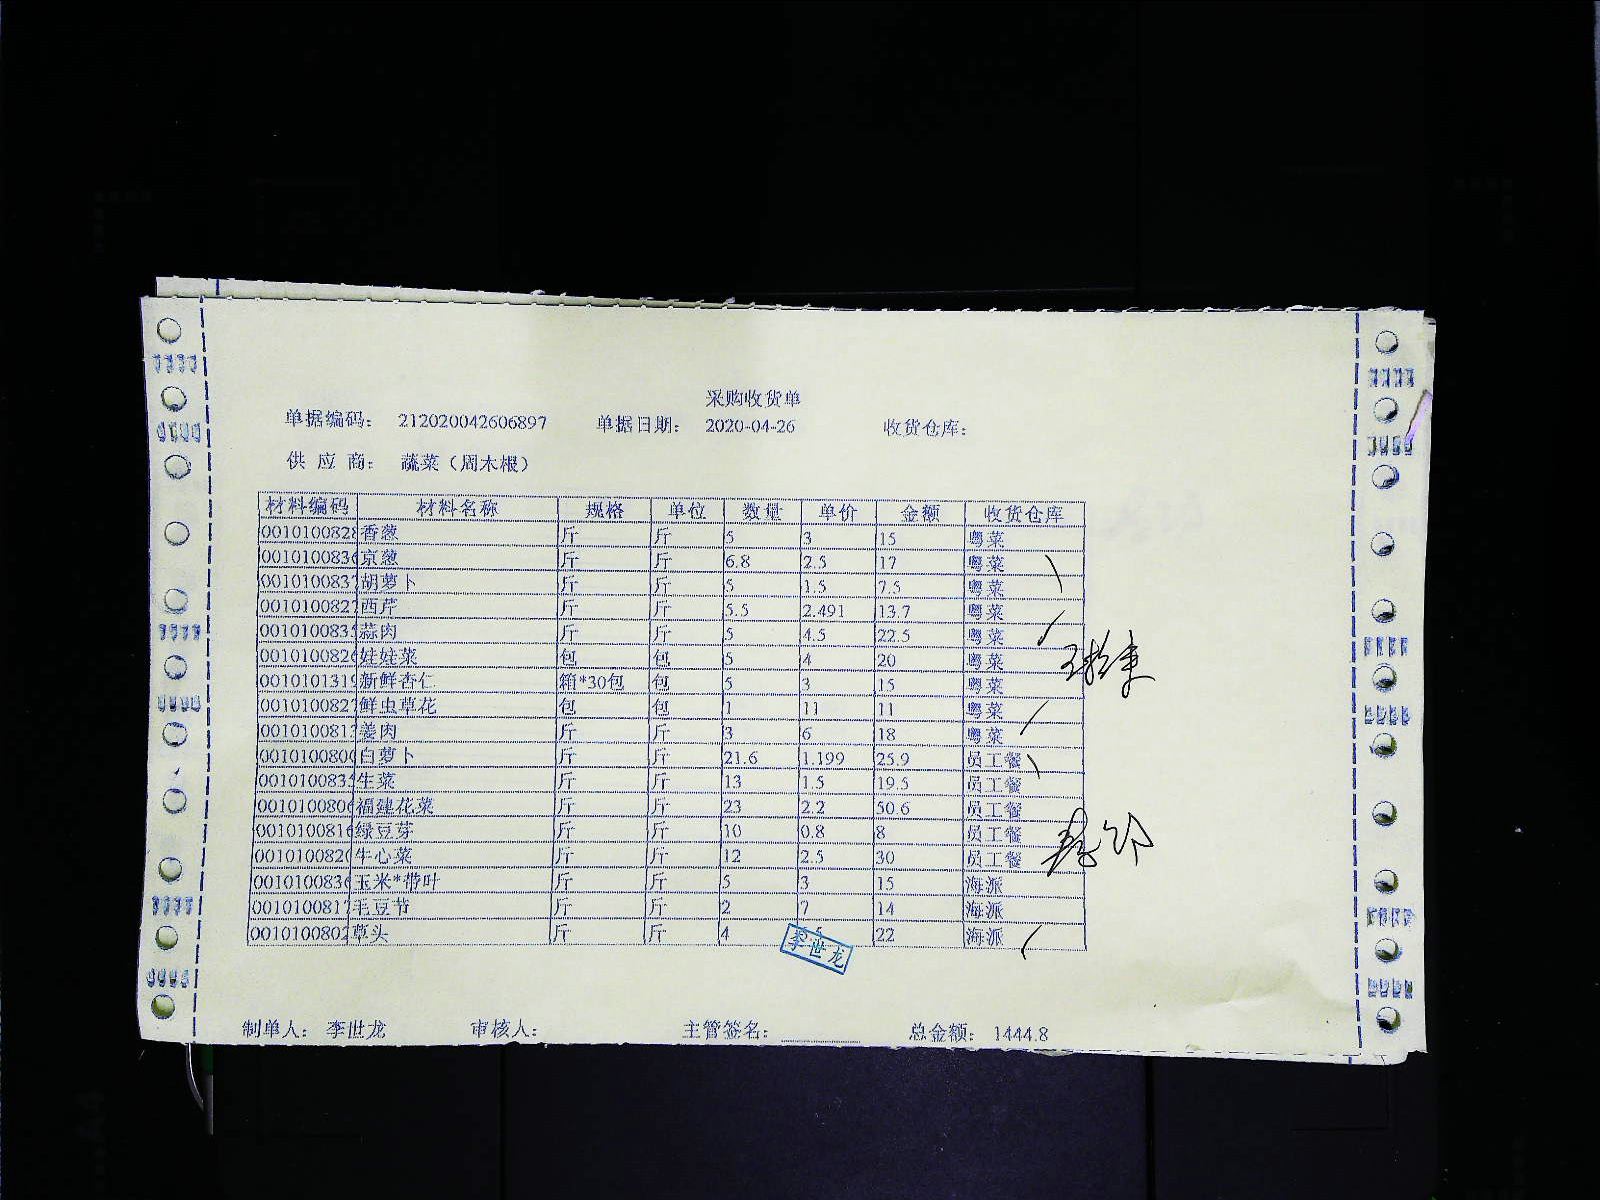 采购收货单
单据编码： 212020042606897 单据日期： 2020-04-26 收货仓库：
供 应 商： 蔬菜（周木根）
材料编码 材料名称 规格 单位 数量 单价 金额 收货仓库
0010100828 香葱 斤 斤 5 3 15 粤菜
001010083 京葱 斤 斤 6.8 2.5 17 粤菜
001010083 胡萝卜 斤 斤 5 1.5 7.5 粤菜
001010082 西芹 斤 斤 5.5 2.491 13.7 粤菜
001010083 蒜肉 斤 斤 5 4.5 22.5 粤菜
001010082 娃娃菜 包 包 5 4 20 粤菜
001010131 新鲜杏仁 箱*30包 包 5 3 15 粤菜
001010082 鲜虫草花 包 包 1 11 11 粤菜
001010081 姜肉 斤 斤 3 6 18 粤菜
001010080 白萝卜 斤 斤 21.6 1.199 25.9 员工餐
001010083 生菜 斤 斤 13 1.5 19.5 员工餐
001010080 福建花菜 斤 斤 23 2.2 50.6 员工餐
001010081 绿豆芽 斤 斤 10 0.8 8 员工餐
001010082 牛心菜 斤 斤 12 2.5 30 员工餐
001010083 玉米*带叶 斤 斤 5 3 15 海派
001010081 毛豆节 斤 斤 2 7 14 海派
001010080 草头 斤 斤 4 22 海派
李世龙
制单人： 李世龙 审核人： 主管签名： 总金额： 1444.8